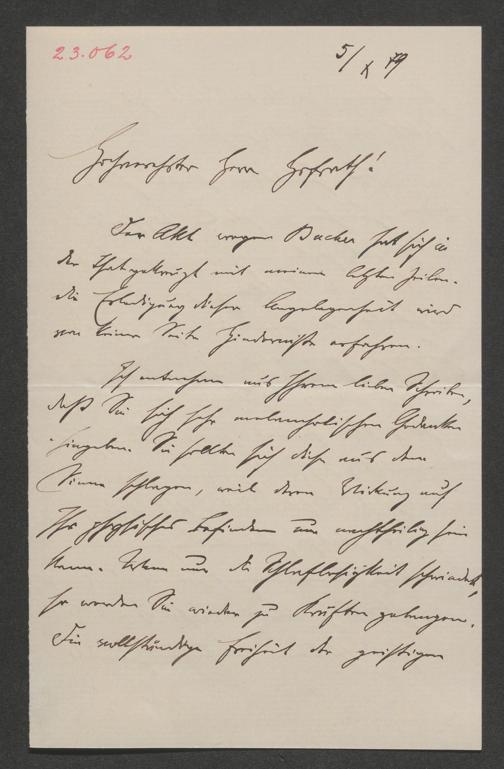 23.062
5/X 79
Hochverehrter Herr Hofrath!
Der Akt wegen Bucher hat sich in
der That gekreuzt mit meinen letzten Zeilen.
die Erledigung dieser Angelegenheit wird
von keiner Seite Hindernisse erfahren.
Ich entnehme aus Ihrem lieben Schreiben,
daß Sie sich sehr melancholischen Gedanken
hingeben. Sie sollten sich diese aus dem
Sinne schlagen, weil deren Wirkung auf
Ihr physisches Befinden nur nachtheilig sein
kann. Wenn nur die Schlaflosigkeit schwindet,
so werden Sie wieder zu Kräften gelangen.
Die vollständige Freiheit der geistigen